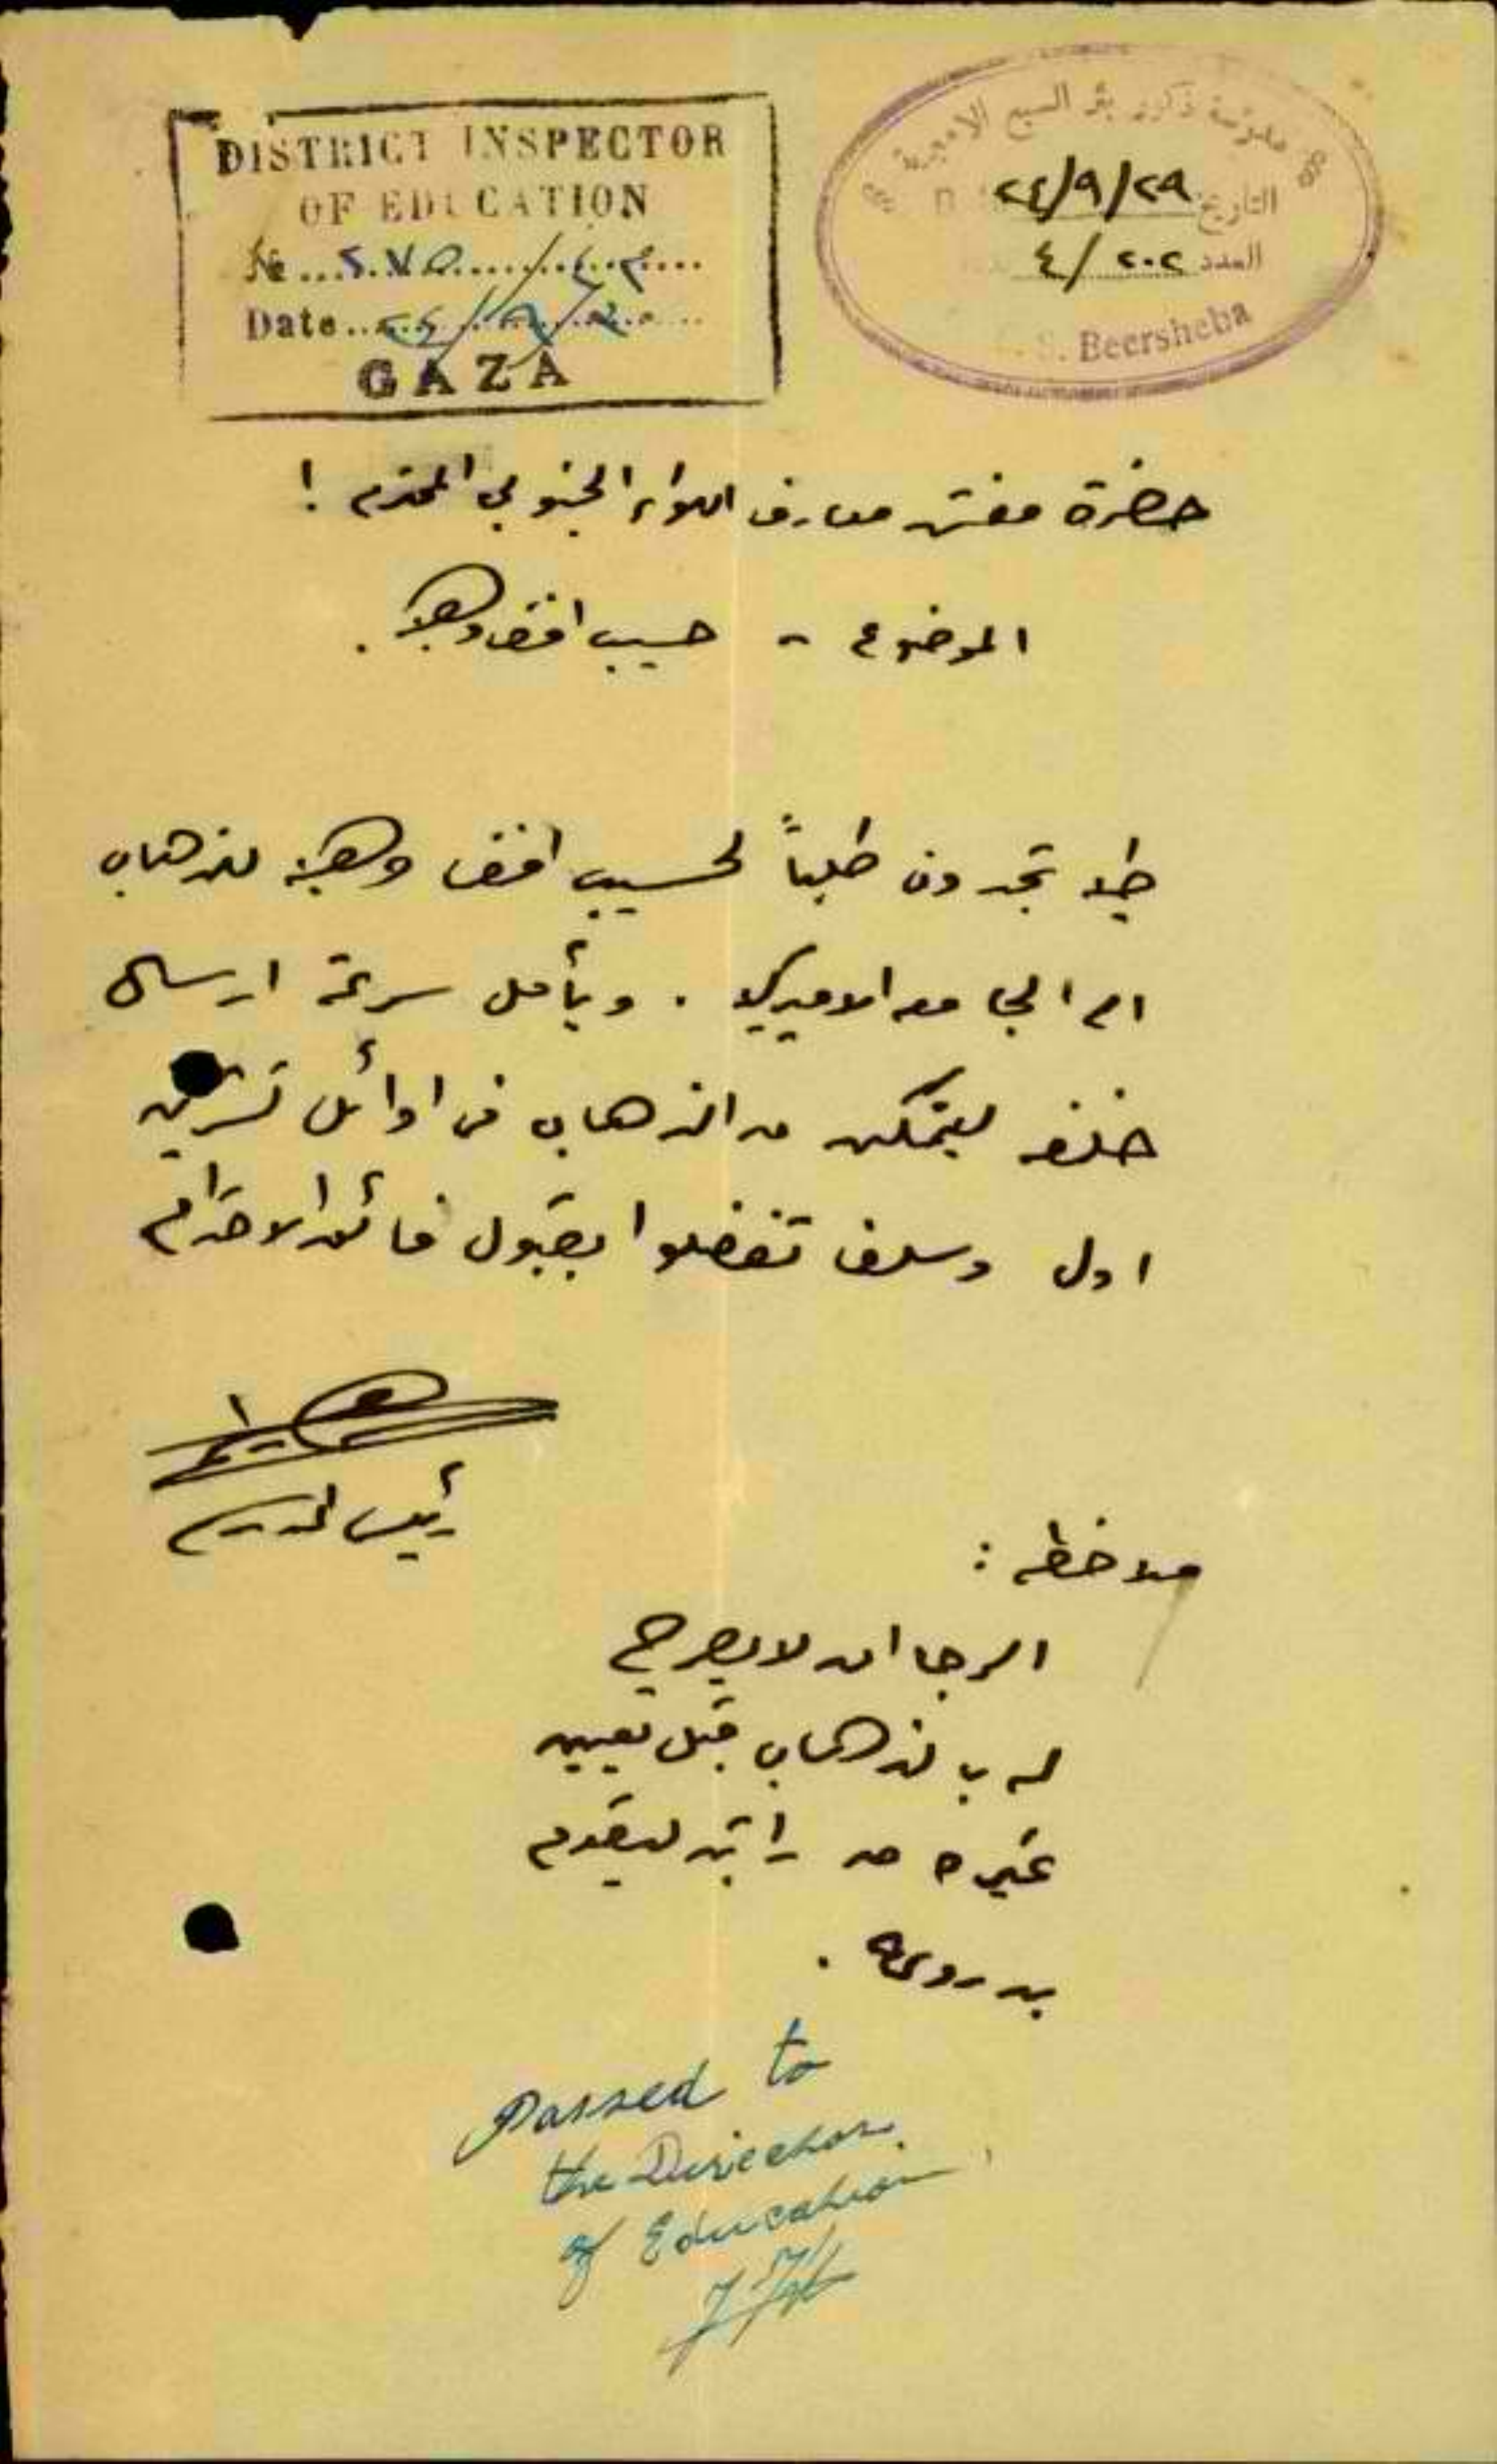 DISTRICT INSPECTOR
OF EDUCATION
No
Date
GAZA
مدرسة ذكور بئر السبع الاميرية
التاريخ ٢٤/٩/٢٩
العدد ٤/٢٠٢
S. Beersheba
حضرة مفتش معارف اللواء الجنوبي المحترم !
الموضوع - حسيب افندي وهبه .
طيه تجدون طلباً لحسيب افندي وهبه للذهاب
الى الجامعه الاميركيه . ويأمل سرعة ارسال
خلفه ليتمكن من الذهاب في اوائل تشرين
اول وسلفا تفضلوا بقبول فائق الاحترام
رئيس المدرسه
ملاحظه :
الرجا ان لا يصرح
له بالذهاب قبل تعيين
غيره من راتبه ليقوم
بدروسه .
Passed to
the Director
of Education